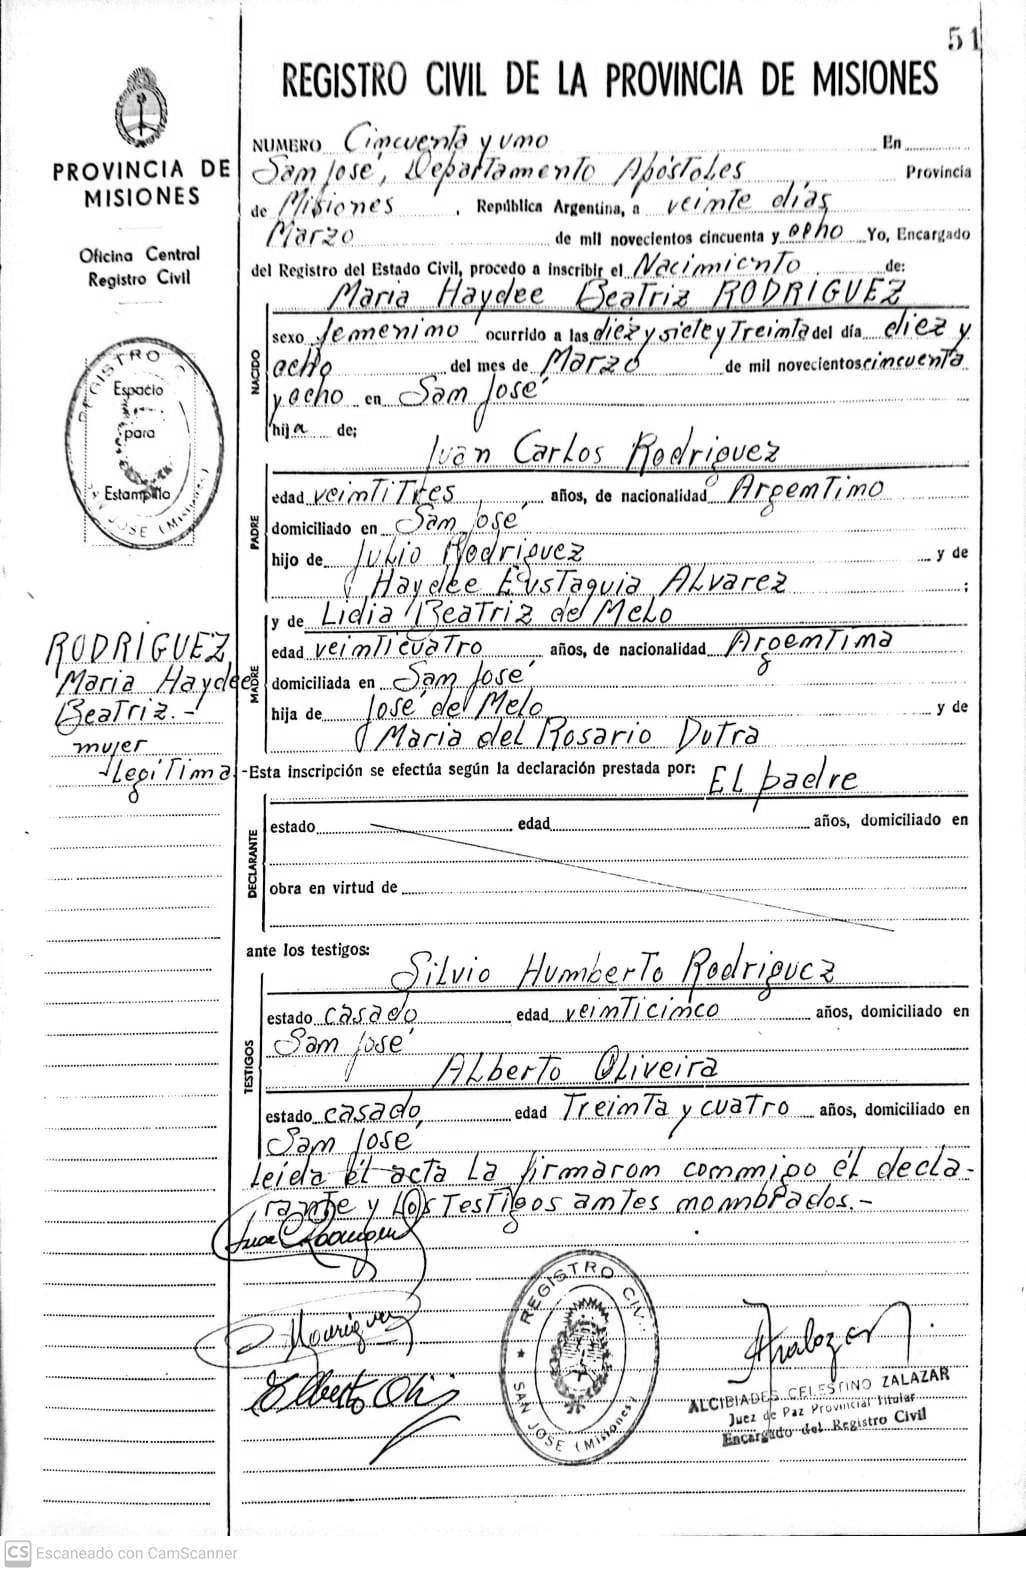 51
REGISTRO CIVIL DE LA PROVINCIA DE MISIONES
PROVINCIA DE
MISIONES
Oficina Central
Registro Civil
REGISTRO C
Espacio
para
Estampilla
SAN JOSE (Misiones)
NUMERO Cincuenta y uno En
San José, Departamento Apóstoles Provincia
de Misiones, República Argentina, a veinte días
Marzo de mil novecientos cincuenta y ocho Yo, Encargado
del Registro del Estado Civil, procedo a inscribir el Nacimiento de:
Maria Haydee Beatriz RODRIGUEZ
NACIDO
sexo femenino ocurrido a las diez y siete y Treinta del día diez y
ocho del mes de Marzo de mil novecientos cincuenta
y ocho en San José
hija de;
PADRE
Juan Carlos Rodriguez
edad veintitres, años, de nacionalidad Argentino
domiciliado en San José
hijo de Julio Rodriguez y de
Haydée Eustaquia Alvarez ;
MADRE
y de Lidia Beatriz de Melo
edad veinticuatro años, de nacionalidad Argentina
domiciliada en San José
hija de José de Melo y de
Maria del Rosario Dutra
RODRIGUEZ
Maria Haydee
Beatriz.-
mujer
-Legítima.
-Esta inscripción se efectúa según la declaración prestada por: El padre
DECLARANTE
estado edad años, domiciliado en
obra en virtud de
ante los testigos:
TESTIGOS
Silvio Humberto Rodriguez
estado casado edad veinticinco años, domiciliado en
San José
Alberto Oliveira
estado casado, edad Treinta y cuatro años, domiciliado en
San José
Leida el acta la firmaron conmigo él decla-
rante y Los Testigos antes nombrados.-
REGISTRO CIVIL
SAN JOSE (Misiones)
ALCIBIADES CELESTINO ZALAZAR
Juez de Paz Provincial Titular
Encargado del Registro Civil
CS Escaneado con CamScanner